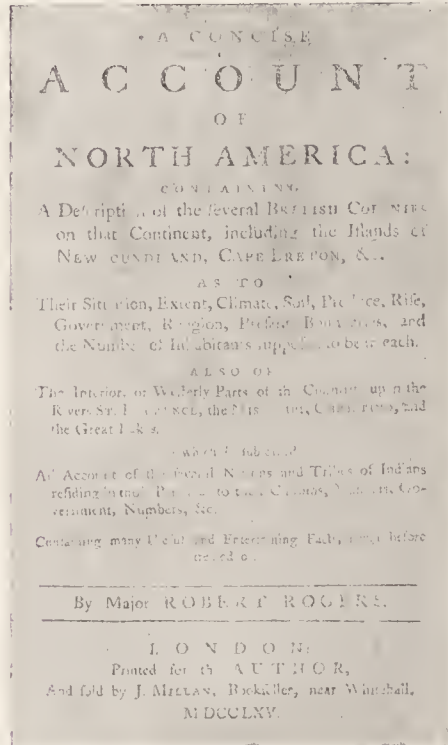 A CONCISE
ACCOUNT
OF
NORTH AMERICA:
CONTAINING
A Description of the ſeveral BRITISH COLONIES
on that Continent, including the Iſlands of
NEWFOUNDLAND, CAPE BRETON, &c.
AS TO
Their Situation, Extent, Climate, Soil, Produce, Riſe,
Government, Religion, Preſent Boundaries, and
the Number of Inhabitants ſuppoſed to be in each.
ALSO OF
The Interior, or Weſterly Parts of the Country, upon the
Rivers ST. LAURENCE, the and
the Great Lakes.
To which is ſubjoined
An Account of the ſeveral Nations and Tribes of Indians
reſiding in thoſe Parts, as to their Cuſtoms, Manners, Go-
vernment, Numbers, &c.
Containing many Uſeful and Entertaining Facts, never before
treated of.
By Major ROBERT ROGERS.
LONDON:
Printed for the AUTHOR,
And ſold by J. MILLAN, Bookſeller, near Whitehall.
MDCCLXV.